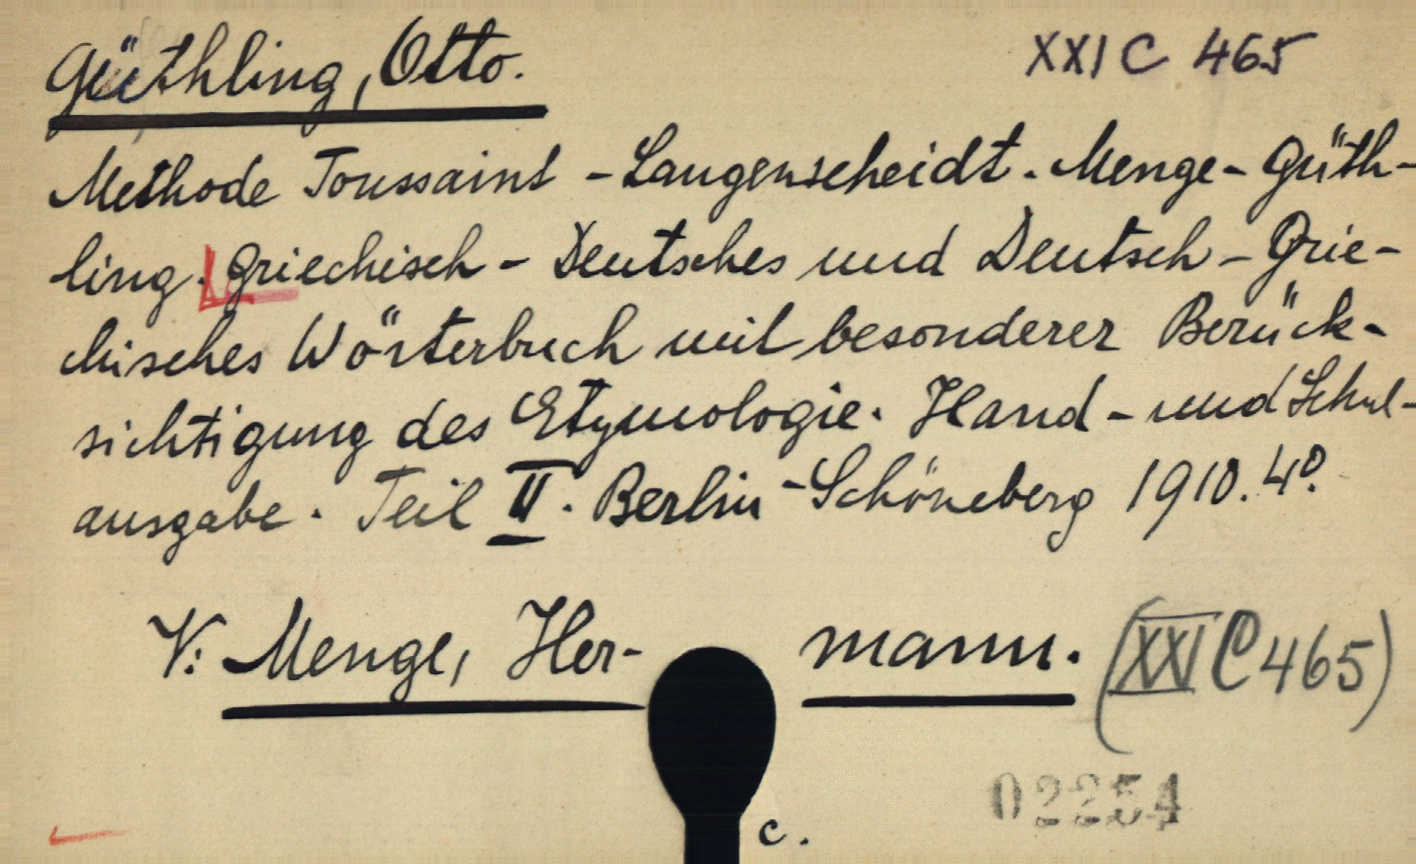 Güthling, Otto. XXI C 465
Methode Toussaint - Langenscheidt. Menge - Güth-
ling. Griechisch - Deutsches und Deutsch - Grie-
chisches Wörterbuch mit besonderer Berück-
sichtigung des Etymologie. Hand - und Schul-
ausgabe. Teil II. Berlin - Schöneberg 1910. 4º.
V: Menge, Her- mann. (XXI C 465)
02254
c.